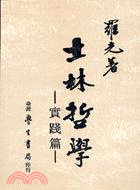 羅光著
士林哲學
—實踐篇—
臺灣學生書局印行